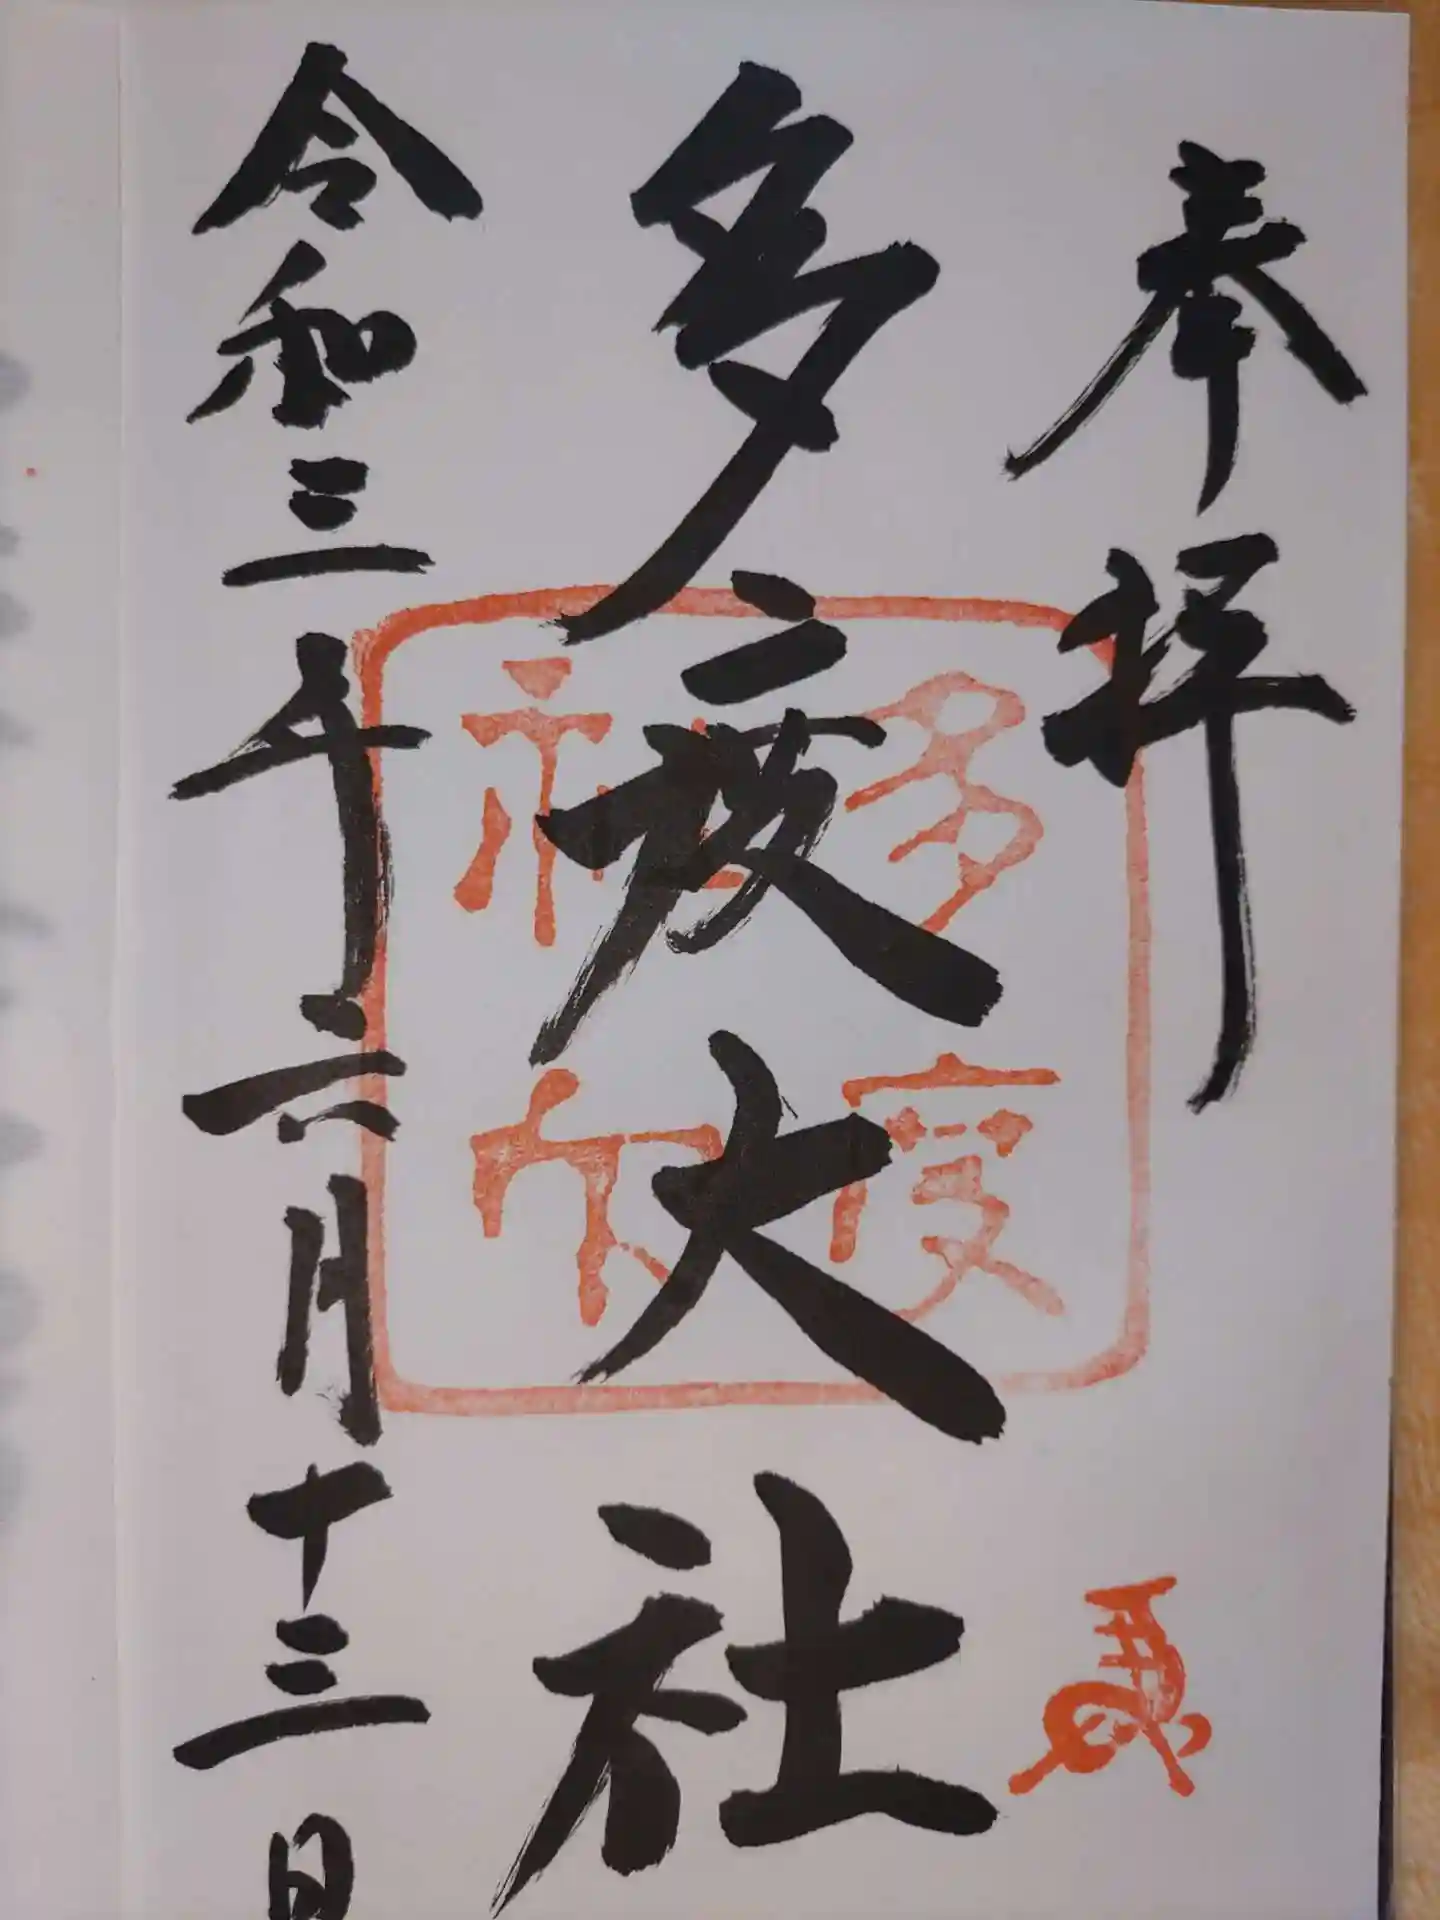 奉拝
多度大社
令和三年六月十三日
多度
社印